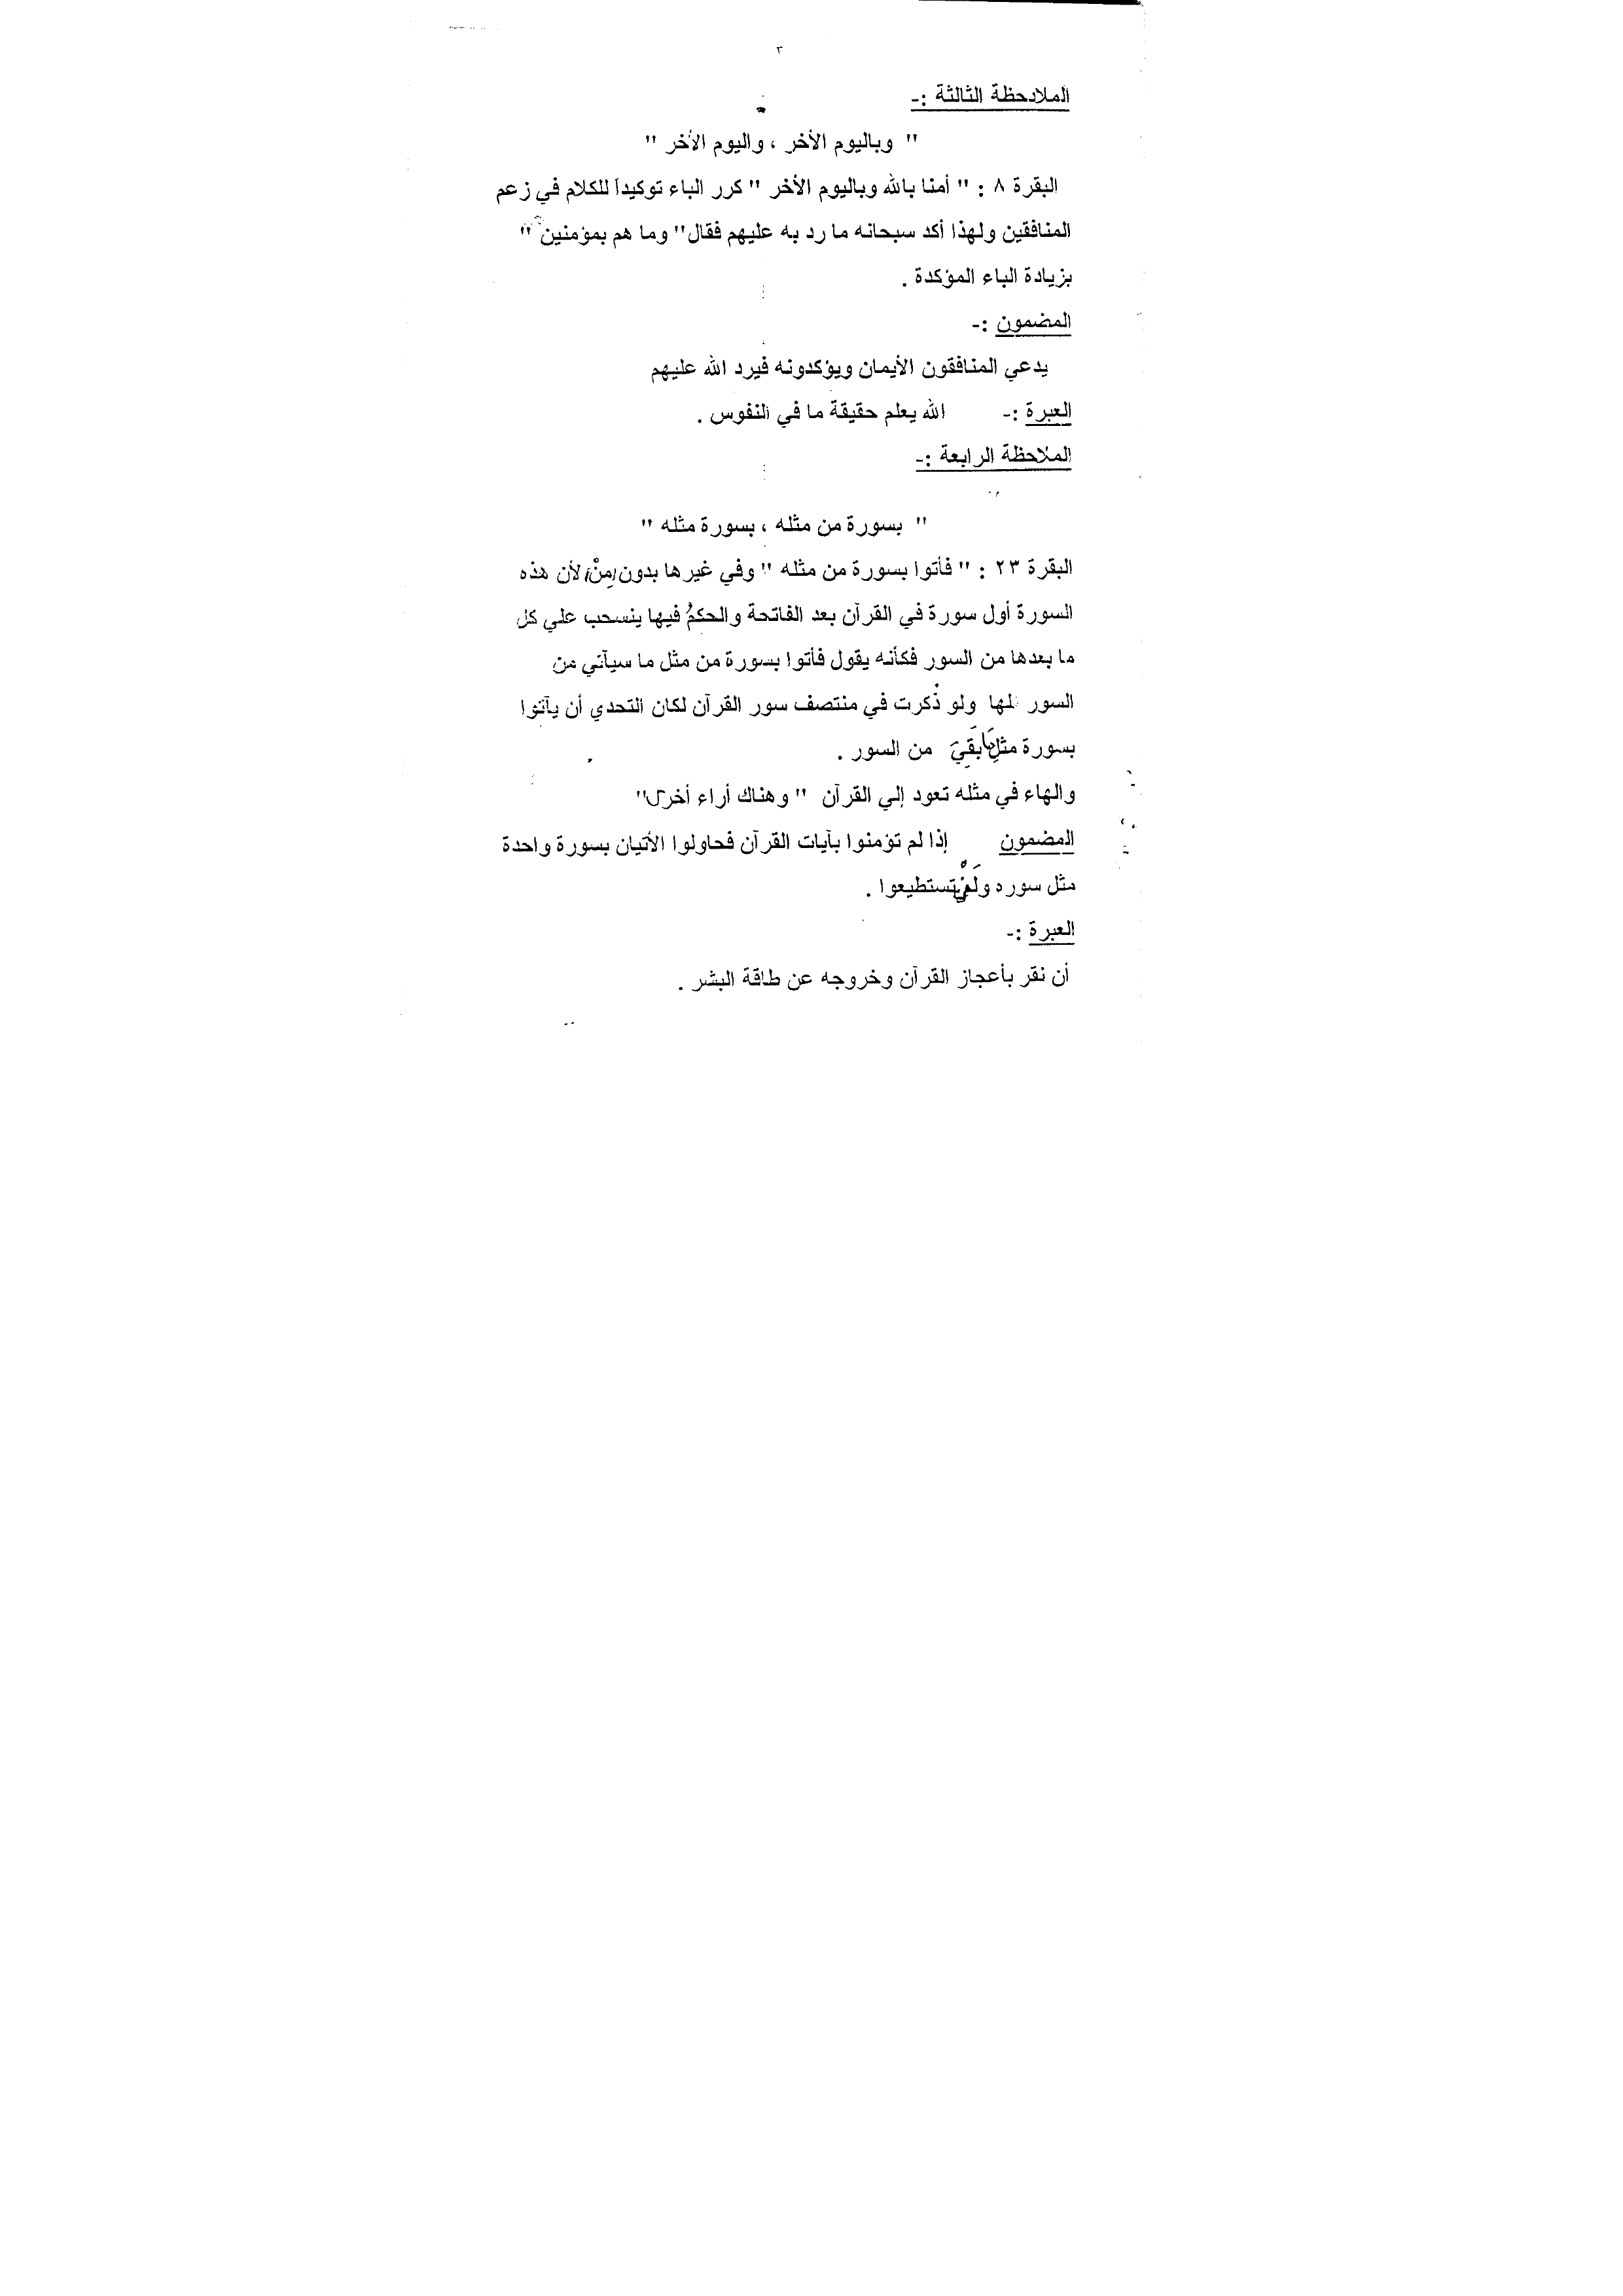 ٣
الملاحظة الثالثة :-
" وباليوم الأخر ، واليوم الأخر "
البقرة ٨ : " أمنا بالله وباليوم الأخر " كرر الباء توكيداً للكلام في زعم
المنافقين ولهذا أكد سبحانه ما رد به عليهم فقال" وما هم بمؤمنين "
بزيادة الباء المؤكدة .
المضمون :-
يدعي المنافقون الأيمان ويؤكدونه فيرد الله عليهم
العبرة :- الله يعلم حقيقة ما في النفوس .
الملاحظة الرابعة :-
" بسورة من مثله ، بسورة مثله "
البقرة ٢٣ : " فأتوا بسورة من مثله " وفي غيرها بدون (مِنْ) لأن هذه
السورة أول سورة في القرآن بعد الفاتحة والحكمُ فيها ينسحب علي كل
ما بعدها من السور فكأنه يقول فأتوا بسورة من مثل ما سيأتي من
السور ولو ذُكرت في منتصف سور القرآن لكان التحدي أن يأتوا
بسورة مثلِ مَا بَقِيَ من السور .
والهاء في مثله تعود إلي القرآن " وهناك أراء أخرى"
المضمون إذا لم تؤمنوا بآيات القرآن فحاولوا الأتيان بسورة واحدة
مثل سوره ولَنْ تستطيعوا .
العبرة :-
أن نقر بأعجاز القرآن وخروجه عن طاقة البشر .